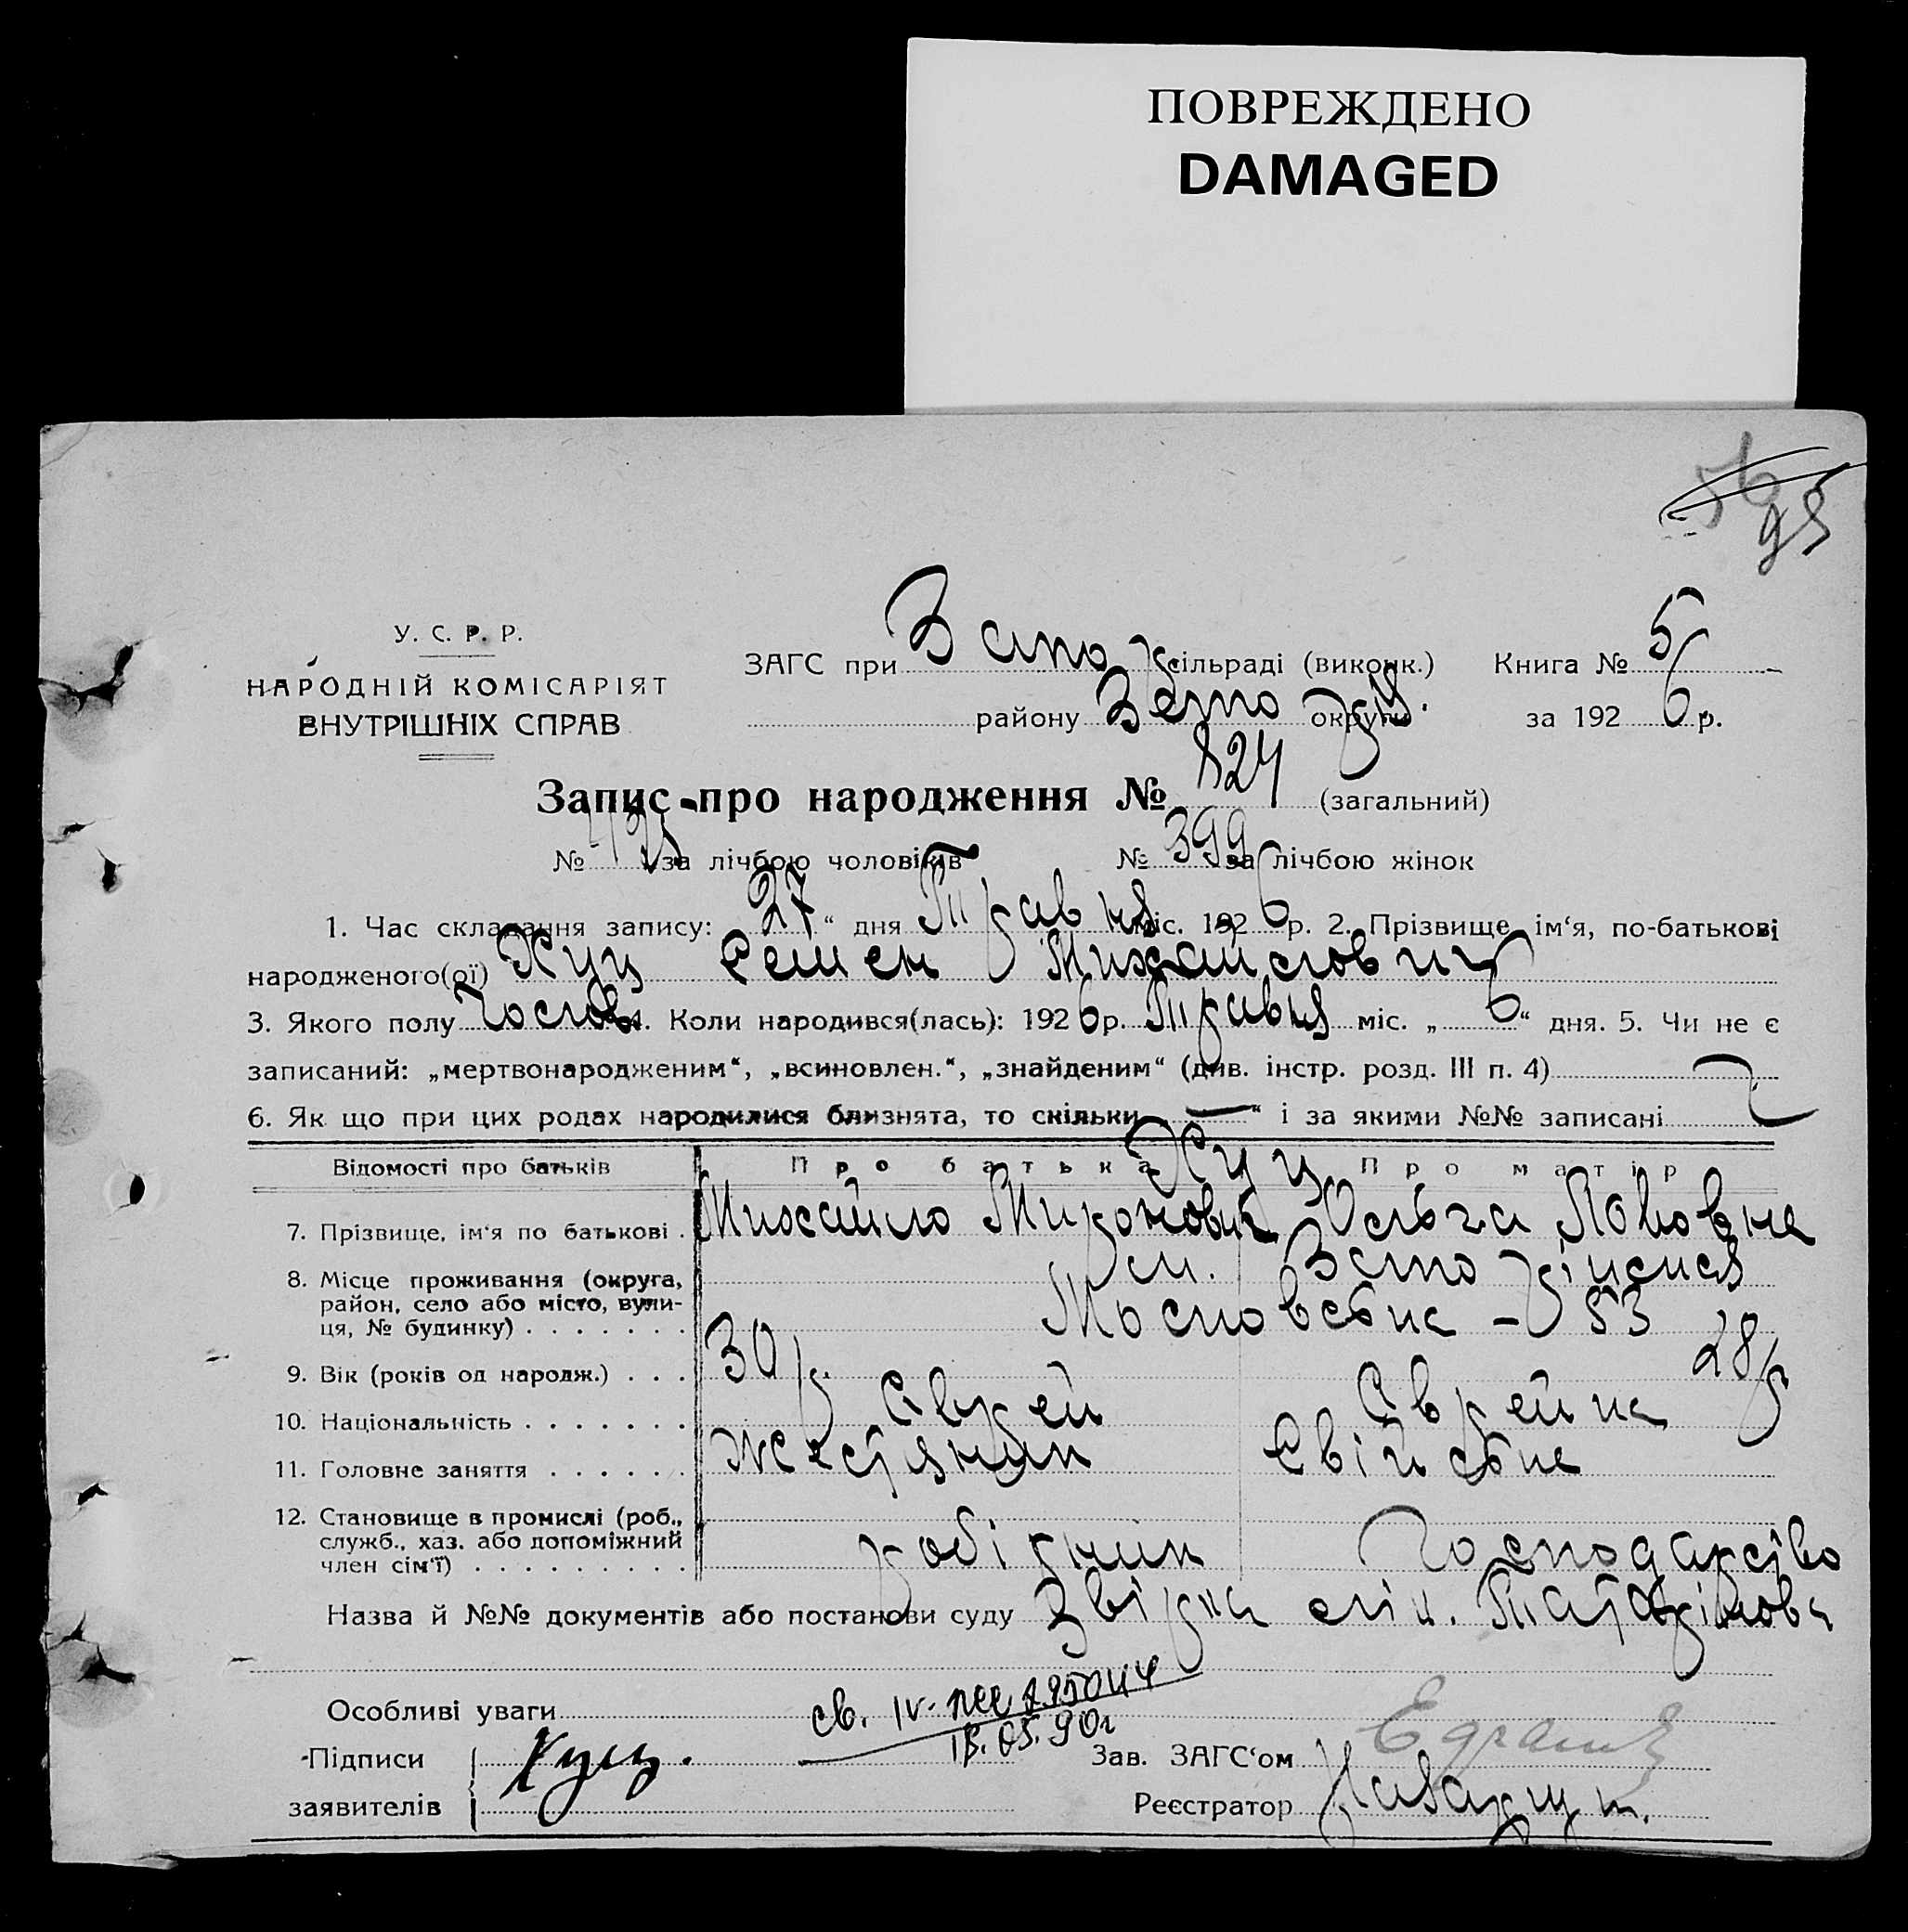 ПОВРЕЖДЕНО
DAMAGED
98
У. С. Р. Р.
НАРОДНІЙ КОМІСАРІЯТ
ВНУТРІШНІХ СПРАВ
ЗАГС при Запор сільраді (виконк.) Книга № 5
району Запо округи за 1926 р.
Запис про народження № 824 (загальний)
№ 425 за лічбою чоловіків № 399 за лічбою жінок
1. Час складання запису: 27 “ дня Травня міс. 1926 р. 2. Прізвище, ім‘я, по-батькові
народженого(ої) Куц Семен Михайлович
3. Якого полу Чолов. Коли народився(лась): 1926 р. Травня міс. „ 6 “ дня. 5. Чи не є
записаний: „мертвонародженим“, „всиновлен.“, „знайденим“ (див. інстр. розд. III п. 4)
6. Як що при цих родах народилися близнята, то скільки — “ і за якими №№ записані
Відомості про батьків Про батька Куц Про матір
7. Прізвище, ім‘я по батькові . Михайло Миронович Ольга Львовна
8. Місце проживання (округа, район, село або місто, вулиця, № будинку) . . . . . . . м. Запоріжжя
Московська - 53
9. Вік (років од народж.) . . . 30 р. 28 р
10. Національність . . . . . . . Єврей Єврейка
11. Головне заняття . . . . . . жестяник Свійське
12. Становище в промислі (роб., служб., хаз. або допоміжний член сім‘ї) . . . . . . . . . робітник Господарство
Назва й №№ документів або постанови суду Звірка лік.
Особливі уваги св. IV-
18.05.90г
Підписи заявителів Куц.
Зав. ЗАГС‘ом
Реєстратор